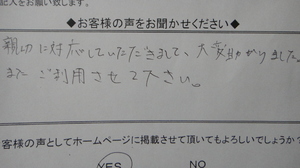 記入をお願い致します。
◆お客様の声をお聞かせください◆
親切に対応していただきまして、大変助かりました。
また ご利用させて下さい。
客様の声としてホームページに掲載させて頂いてもよろしいでしょうか?
YES NO